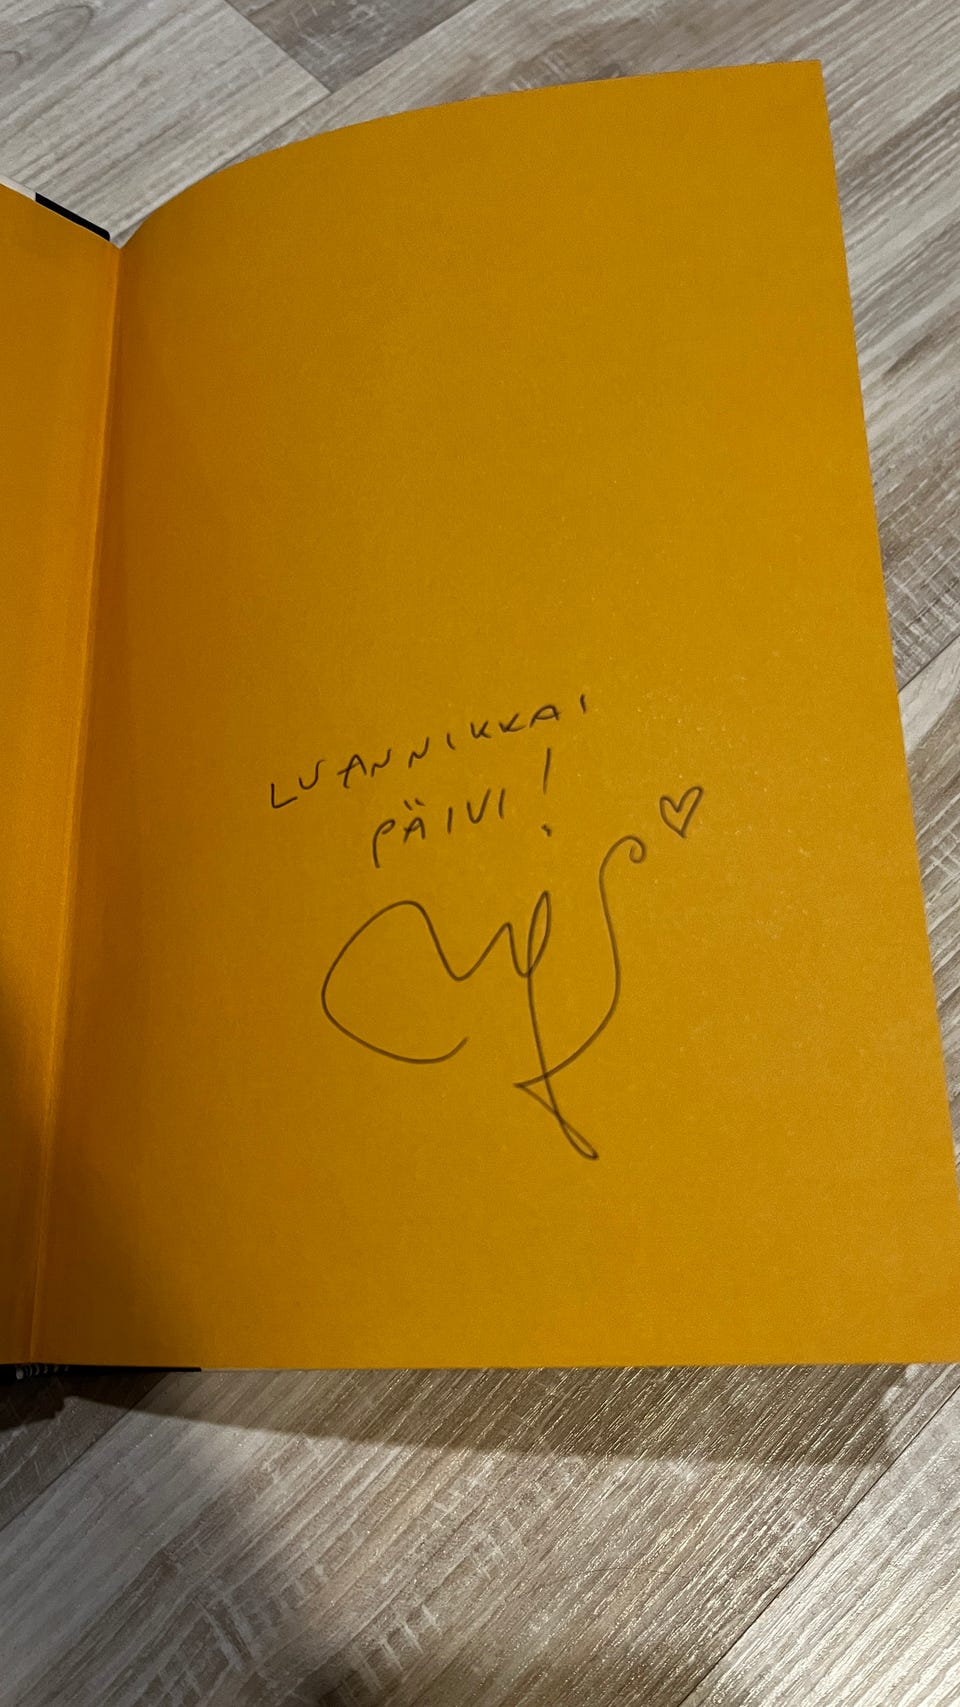 LUANNIKKAI
PÄIVI!